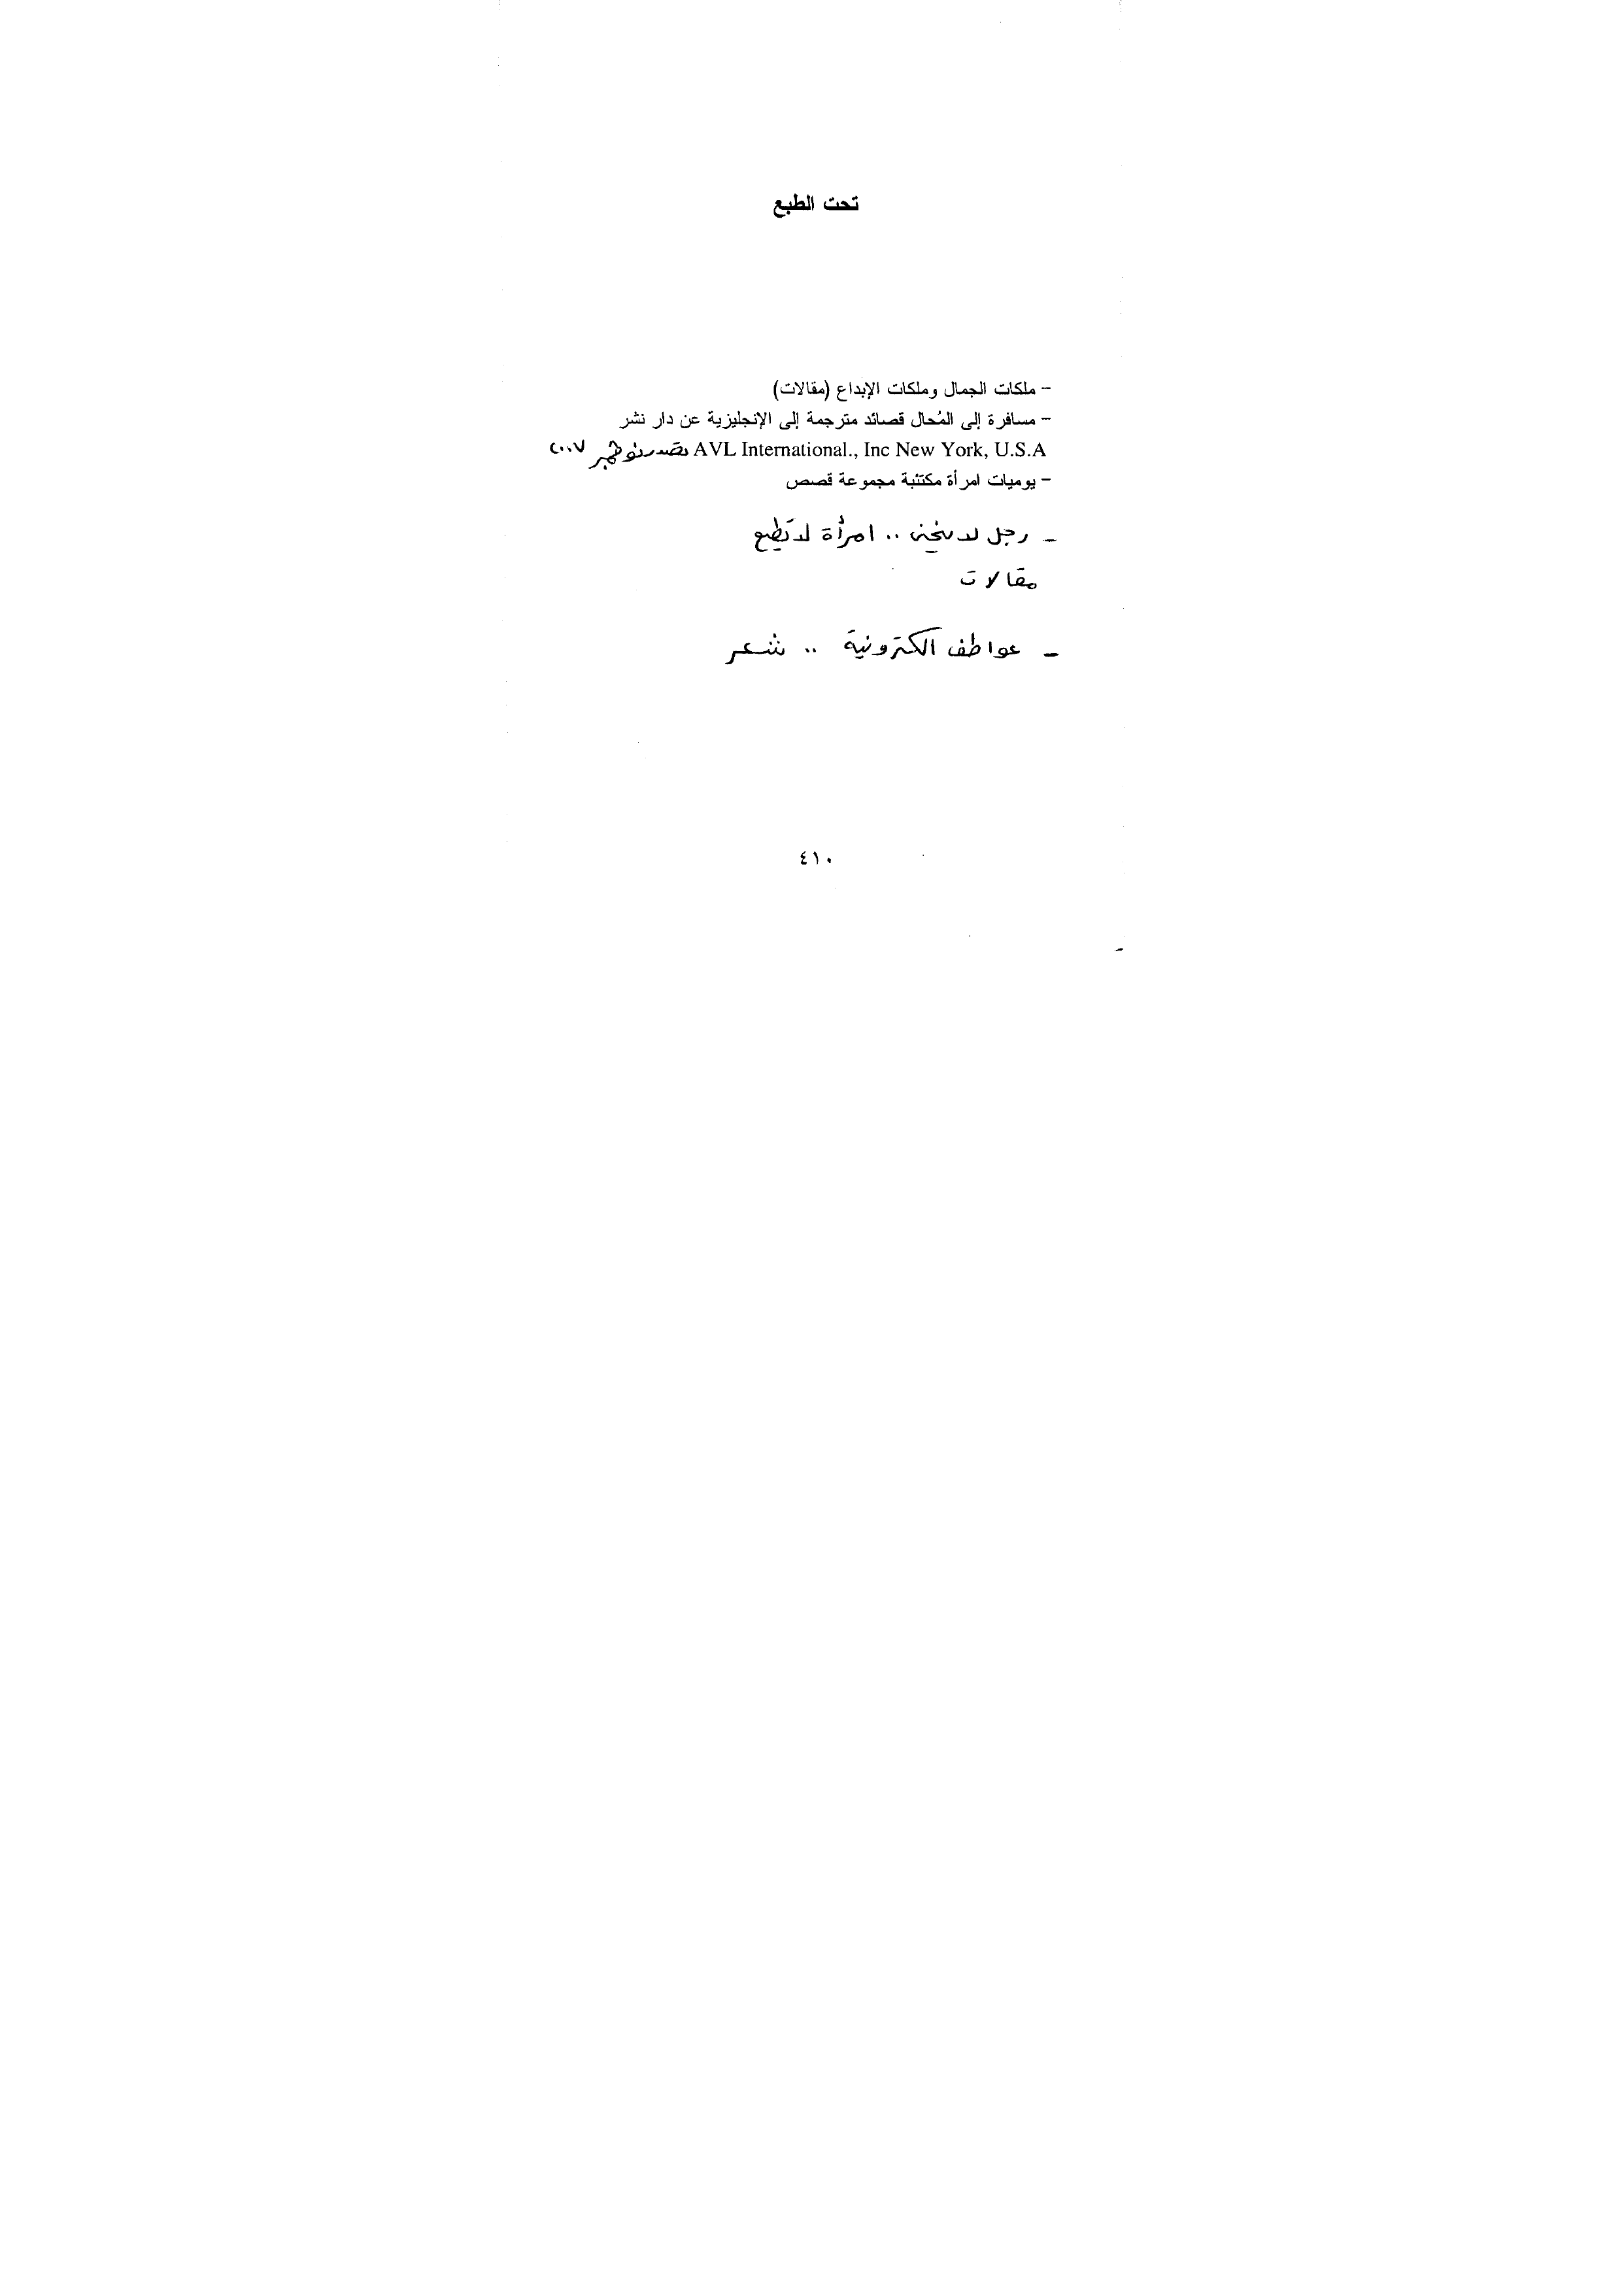 تحت الطبع
- ملكات الجمال وملكات الإبداع (مقالات)
- مسافرة إلى المُحال قصائد مترجمة إلى الإنجليزية عن دار نشر
AVL International., Inc New York, U.S.A تصدر نوفمبر ٢٠٠٧
- يوميات امرأة مكتئبة مجموعة قصص
- رجل لا .. امرأة لا تطيع
مقالات
- عواطف الكترونية .. شعر
٤١٠